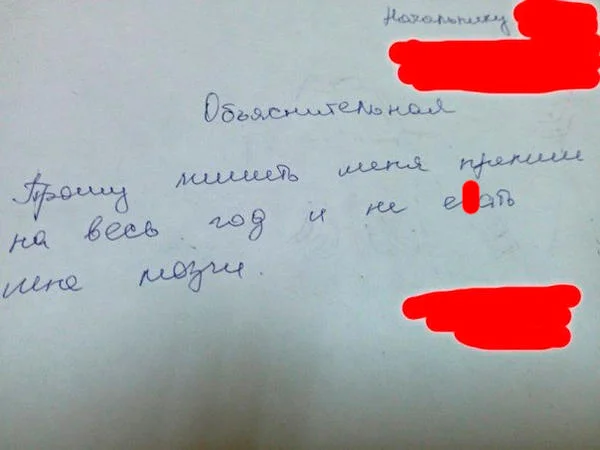 Начальнику
Объяснительная
Прошу лишить меня премии
на весь год и не е ать
мне мозги.